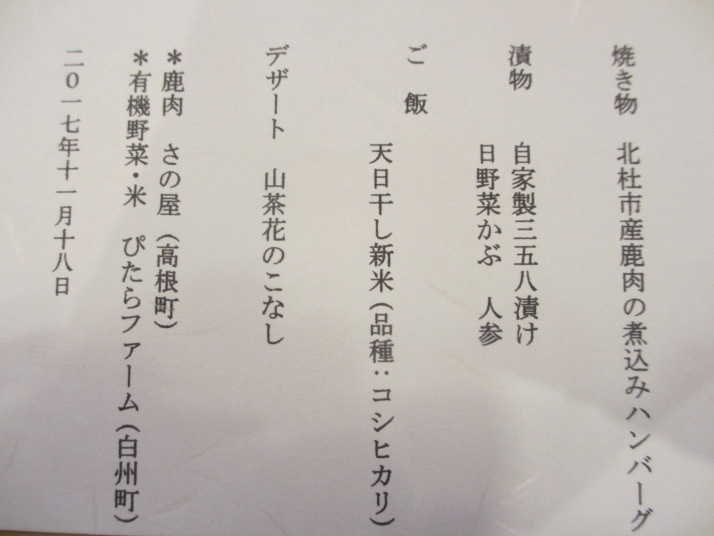 焼き物　北杜市産鹿肉の煮込みハンバーグ
漬物　自家製三五八漬け
日野菜かぶ　人参
ご　飯
天日干し新米（品種：コシヒカリ）
デザート　山茶花のこなし
＊鹿肉　さの屋（高根町）
＊有機野菜・米　ぴたらファーム（白州町）
二〇一七年十一月十八日